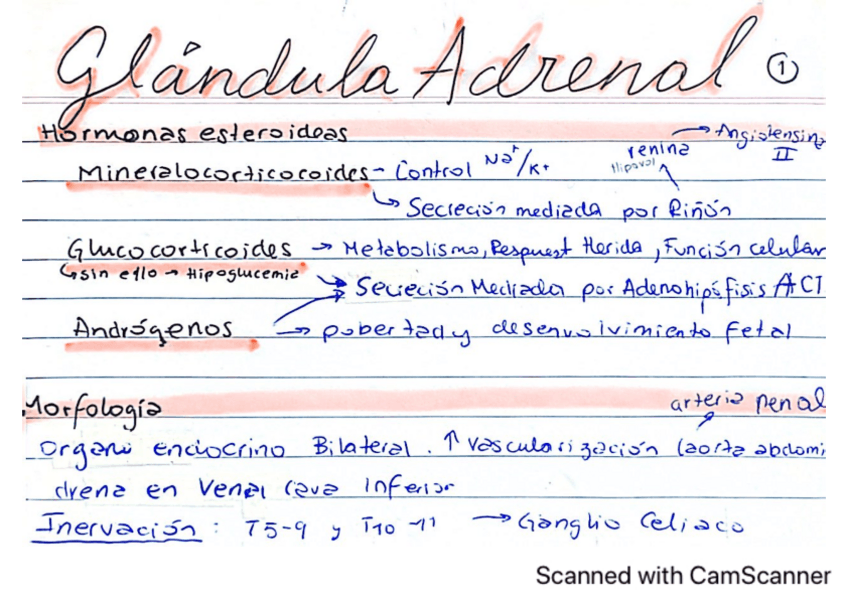 Glándula Adrenal ①
Hormonas esteroideas
renina → Angiotensina II
Mineralocorticocoides - Control Na+/K+
↳ Secreción mediada por Riñón
Glucocorticoides → Metabolismo, Respuest Herida, Función celular
↳ sin ello → Hipoglucemia
Secreción Mediada por Adenohipófisis ACT
Andrógenos → pubertad y desenvolvimiento fetal
Morfología
arteria renal
Organo endocrino Bilateral. ↑ vascularización (aorta abdomi
drena en Vena Cava Inferior
Inervación: T5-9 y T10-11 → Ganglio Celiaco
Scanned with CamScanner